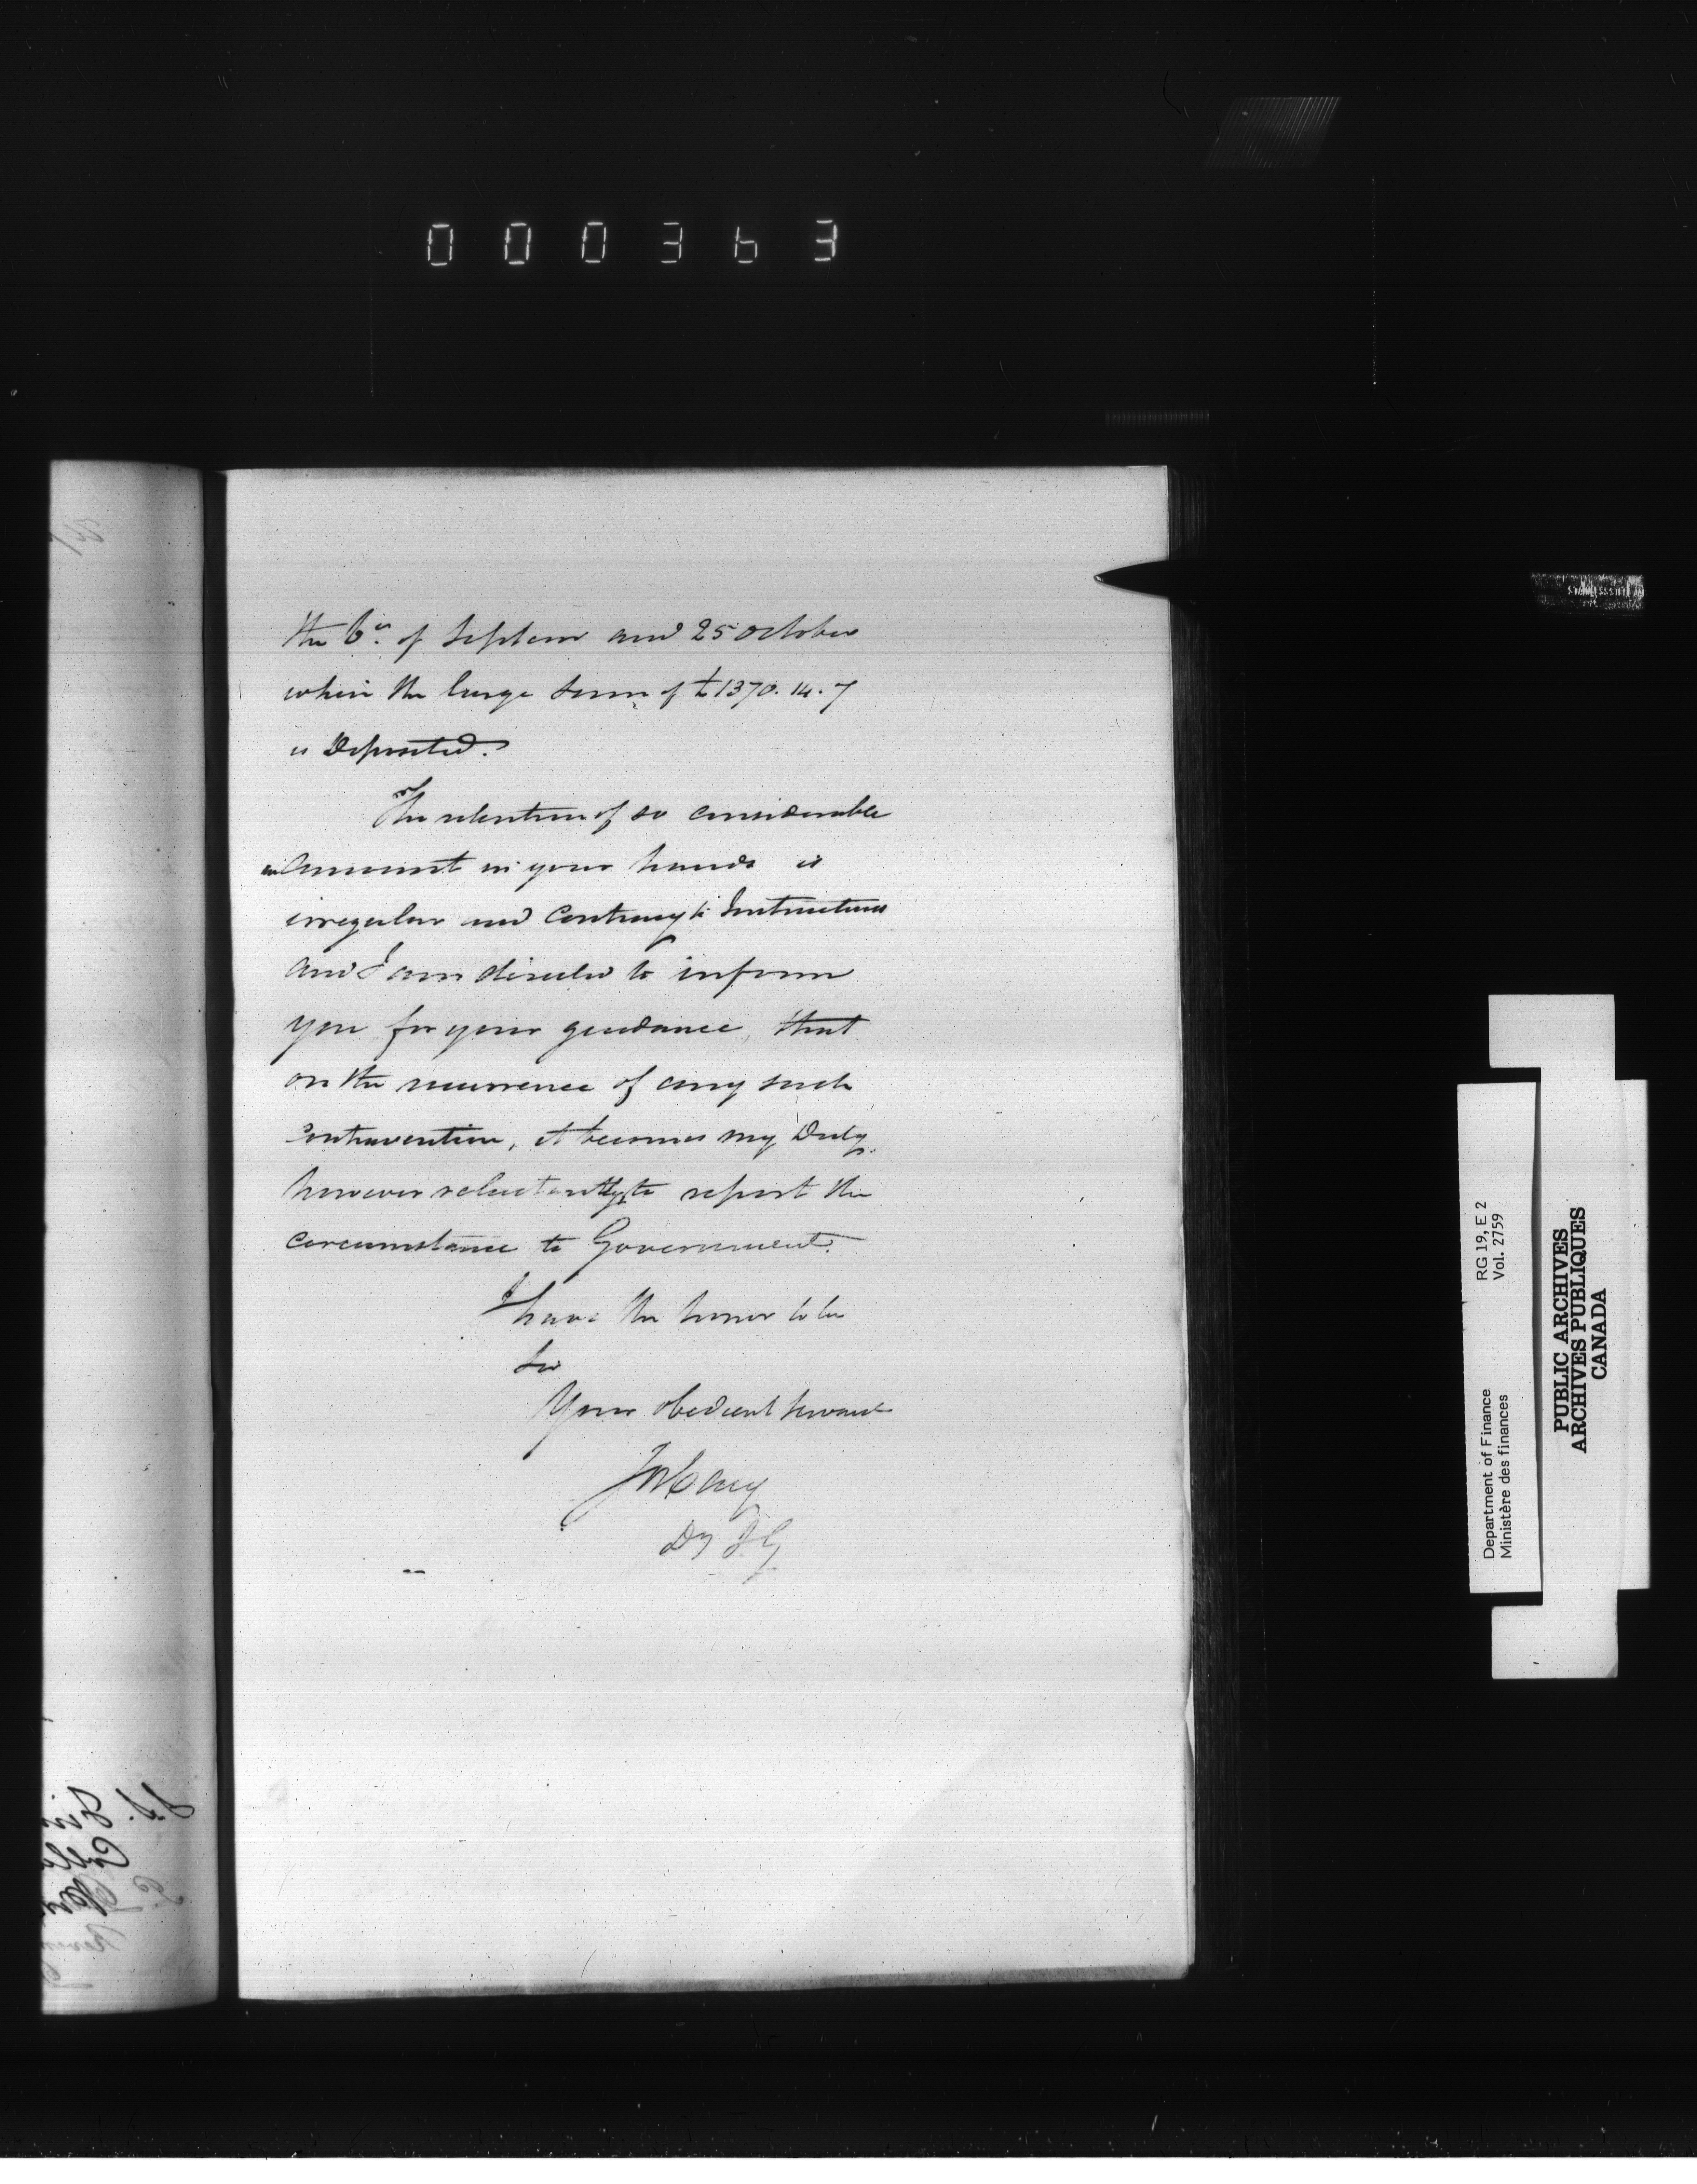 000363
the 6th of Septem and 25 October
when the large sum of £1370.14.7
is Deposited.
The retention of so considerable
an amount in your hands is
irregular and contrary to Instructions
and I am directed to inform
you for your guidance, that
on the recurrence of any such
contravention, it becomes my Duty
however reluctantly to report the
circumstance to Government.
I have the honor to be
Sir
Your obedient servant
Dy I G
Department of Finance
Ministère des finances
RG 19, E 2
Vol. 2759
PUBLIC ARCHIVES
ARCHIVES PUBLIQUES
CANADA